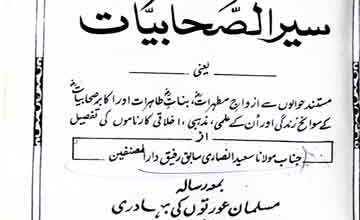 سیر الصحابیات
یعنی
مستند حوالوں سے ازواج مطہراتؓ، بناتؓ طاہرات اور اکابر صحابیاتؓ
کے سوانح زندگی اور اُن کے علمی، مذہبی، اخلاقی کارناموں کی تفصیل
از
جناب مولانا سعید انصاری سابق رفیق دار المصنفین
بمعہ رسالہ
مسلمان عورتوں کی بہادری